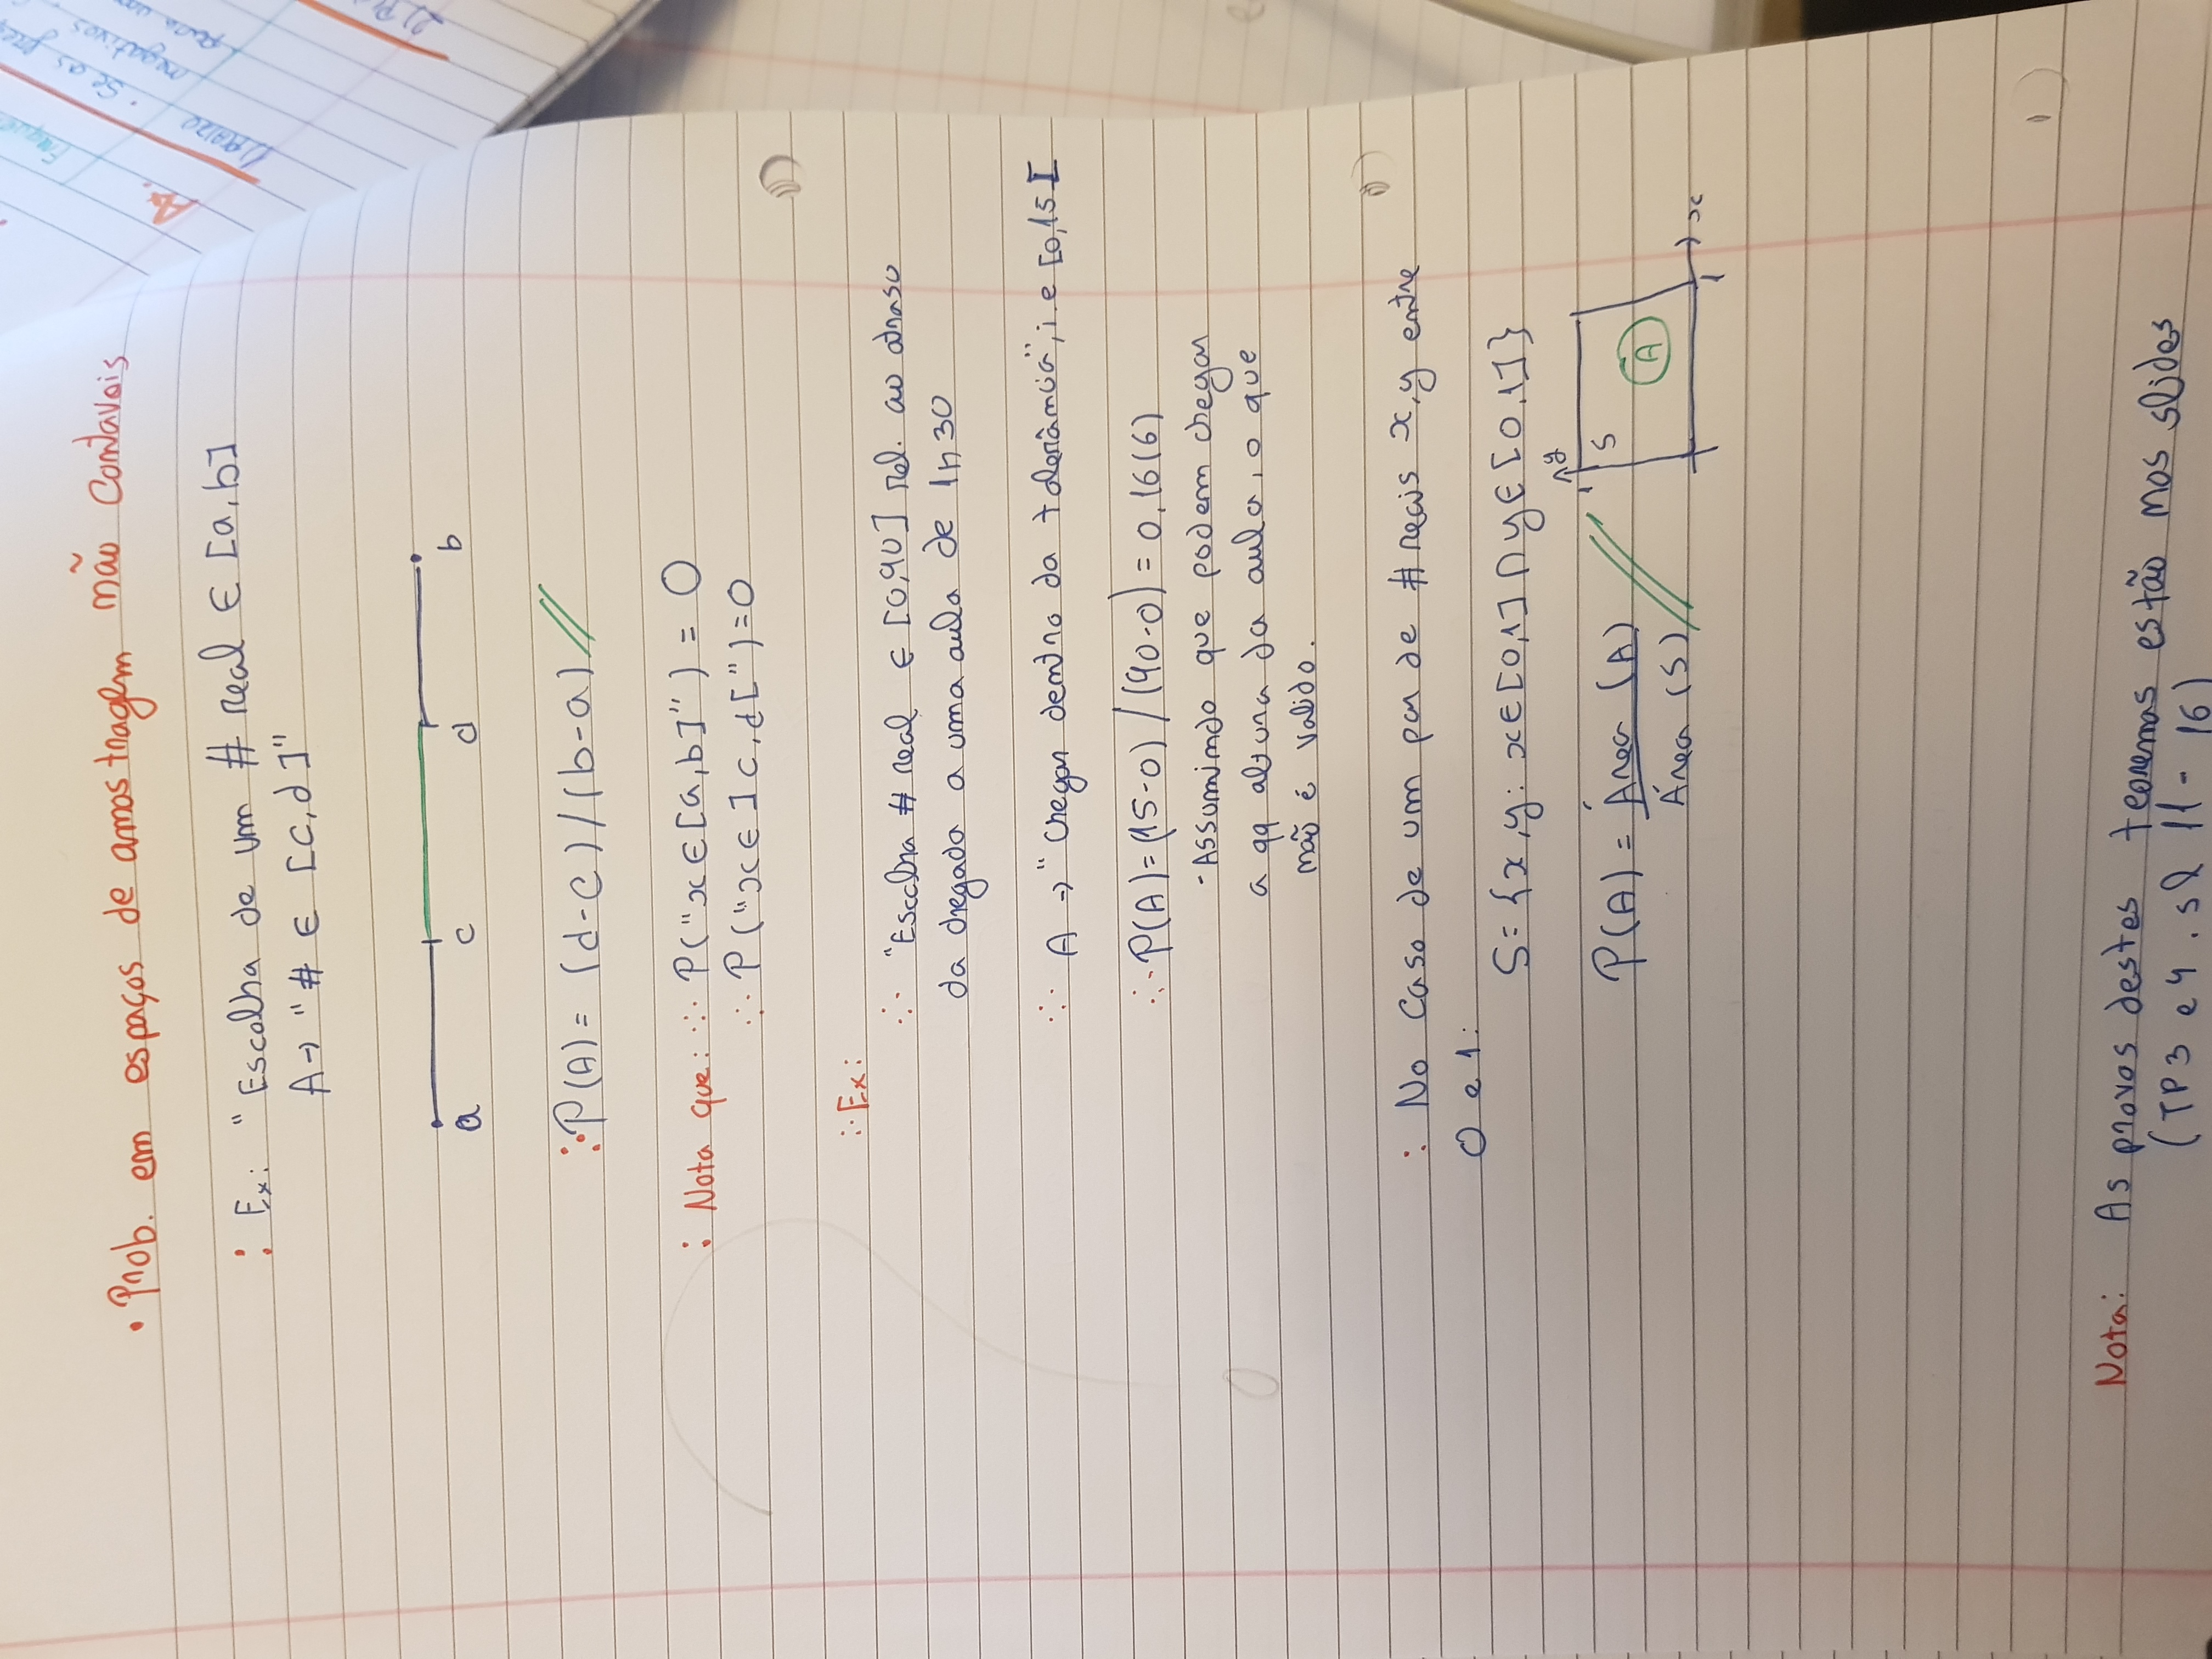 • Prob. em espaços de amostragem não Contavais
: Ex: "Escolha de um # real ∈ [a,b]
A→ "# ∈ [c,d]"
a c d b
∴ P(A) = (d-c)/(b-a)//
: Nota que: ∴ P("x∈[a,b]") = 0
∴ P("x∈]c,d[")=0
∴ Ex:
∴ "Escolha # real ∈ [0,90] rel. ao atraso
da chegada a uma aula de 1h30
∴ A → "Chegar dentro da tolerância", i.e [0,15[
∴ P(A)=(15-0)/(90-0)=0,16(6)
-Assumindo que podem chegar
a qq altura da aula, o que
não é valido.
: No caso de um par de # reais x,y entre
0 e 1:
S={x,y: x∈[0,1]∩y∈[0,1]}
P(A) = Área (A)
Área (S) //
y
1
S
A
x
1
Nota: As provas destes teoremas estão nos slides
(TP3 e 4. sl 11 - 16)
Ax.
Se as
negativos
para um